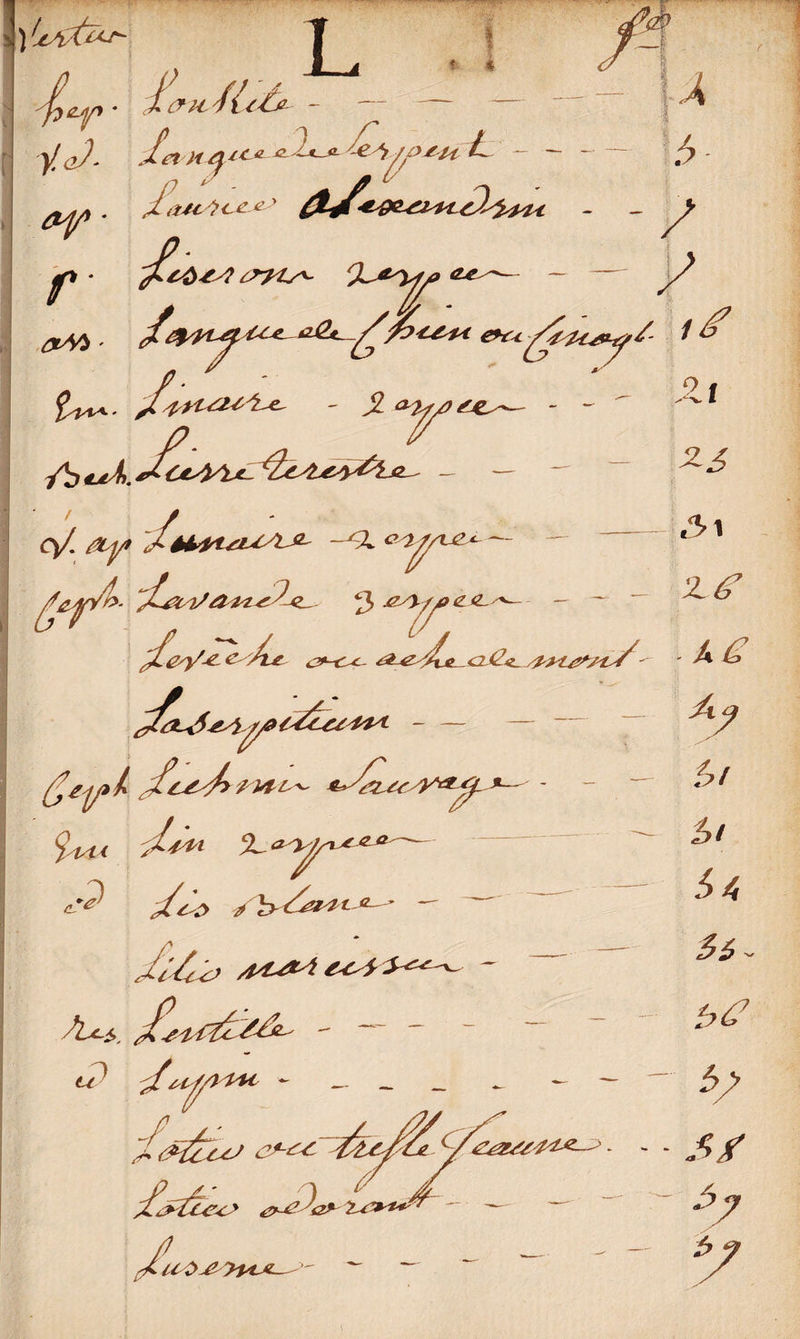 Vertus L f.o
hep. Lonkite - - - - - 4
Vul. Langue de Serpent - - - - 5
ap. Laurier Alexandrin - - 7
p. Liserons 2 espèces - - 7
ass. Langue de Chien ou Cinogl. 16
hu. Linaire - 2 espèces - - - 21
bech. Lierre terrestre - - - - 23
V. ap Lunaire - 2 espèces - - 31
Ceph. Lavande 3 especes - - - 26
Levêche ou ache de mont - - 46
Laserpitium - - - - - 49
Ceph Lichnis sauvage - - - 51
hu Lin 2 especes - - 51
ed Lis blanc - - - 54
Lilio narcissus - - - 55
Res. Lentille - - - - - - 56
ed Lupin - - - - - - - 57
Lotus ou trefle jeaune. - - 58
Lotus odorant - - - - - 59
Luserne - - - - - - - 59